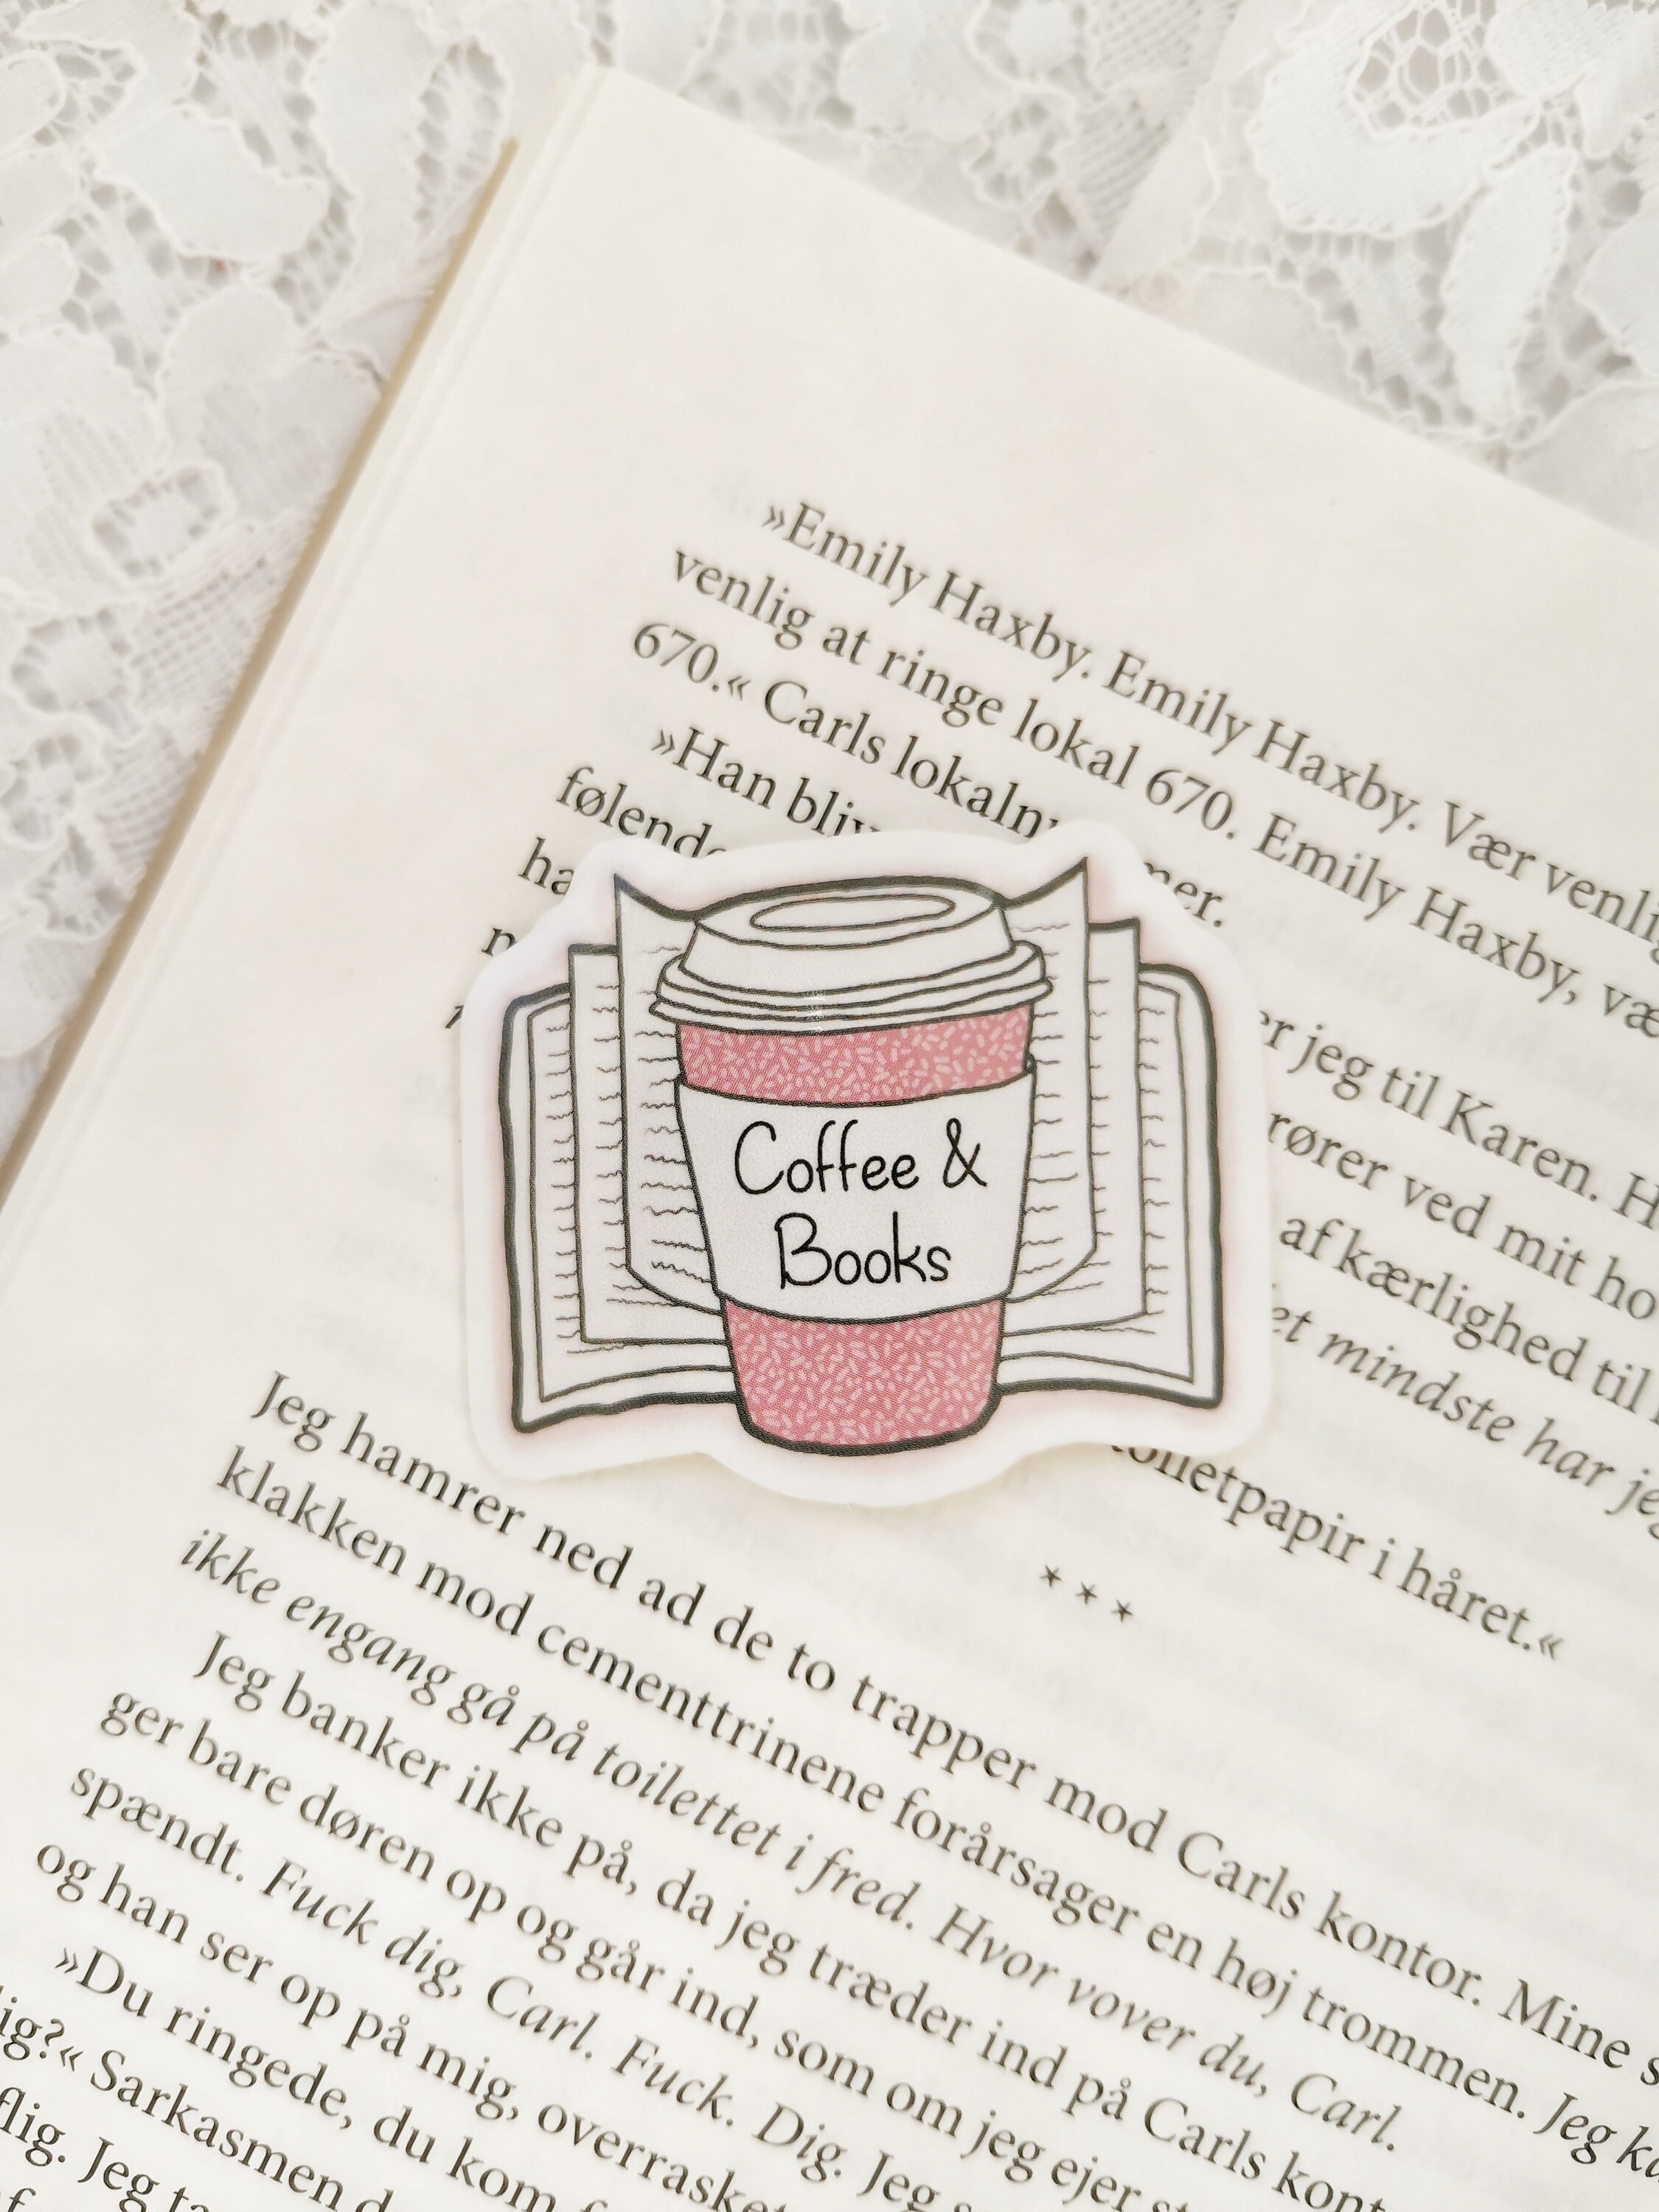 »Emily Haxby. Emily Haxby. Vær venlig
venlig at ringe lokal 670. Emily Haxby, vær
670.« Carls lokalnummer.
»Han bliv
følende
er jeg til Karen. H
rører ved mit ho
af kærlighed til
et mindste har jeg
toiletpapir i håret.«
* * *
Coffee &
Books
Jeg hamrer ned ad de to trapper mod Carls kontor. Mine s
klakken mod cementtrinene forårsager en høj trommen. Jeg ka
ikke engang gå på toilettet i fred. Hvor vover du, Carl.
Jeg banker ikke på, da jeg træder ind på Carls kont
ger bare døren op og går ind, som om jeg ejer st
spændt. Fuck dig, Carl. Fuck. Dig. Jeg s
og han ser op på mig, overrasket
»Du ringede, du kom f
lig?« Sarkasmen d
flig. Jeg ta
af